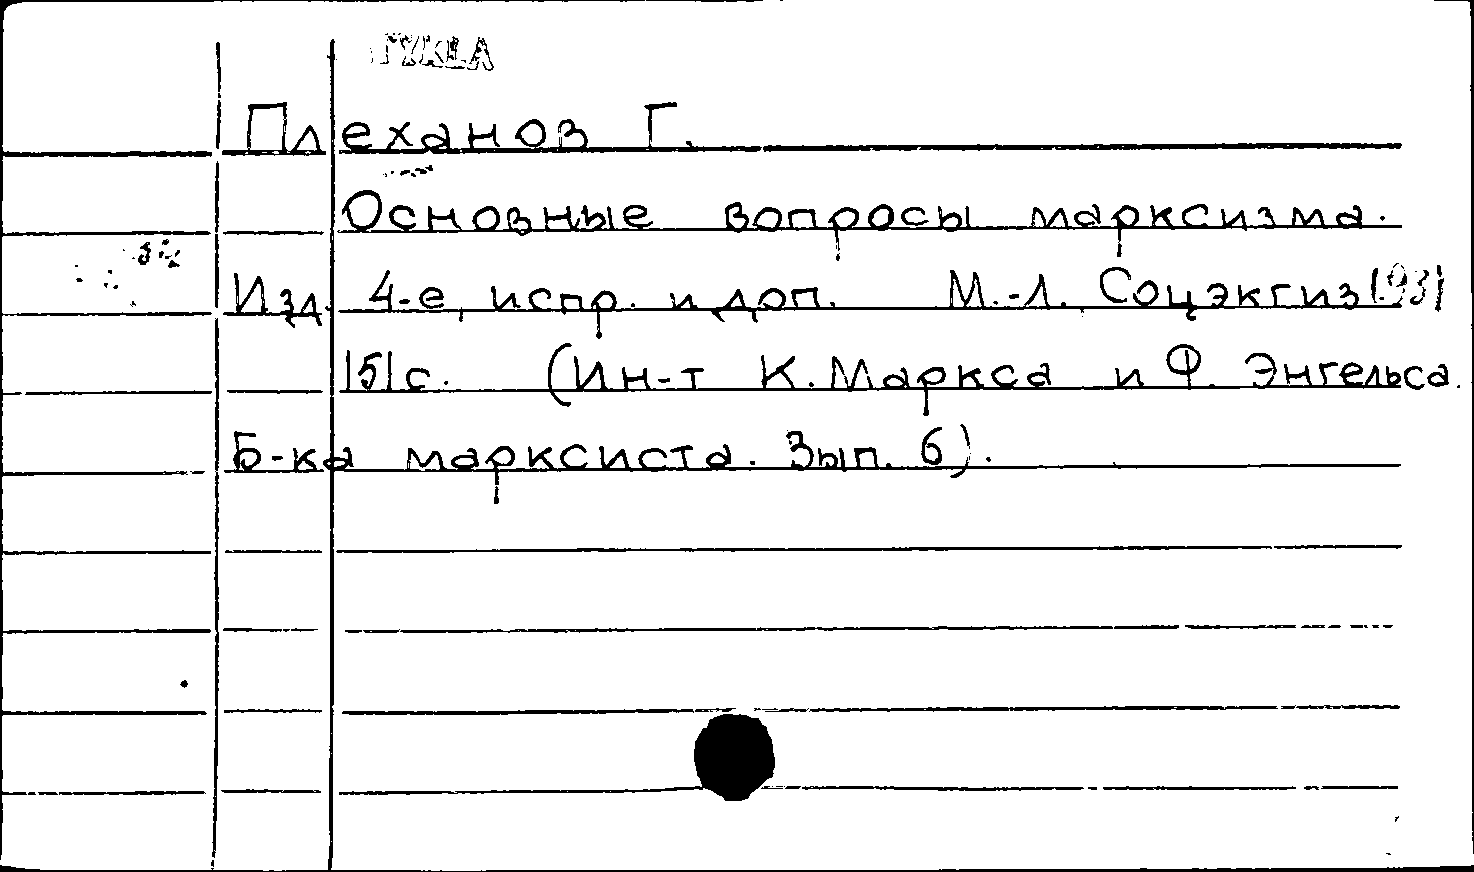 Плеханов Г.
Основные вопросы марксизма.
Изд. 4-е, испр. и доп. М.-Л. Соцэкгиз 1931
151 с. (Ин-т К. Маркса и Ф. Энгельса.
Б-ка марксиста. Вып. 6).